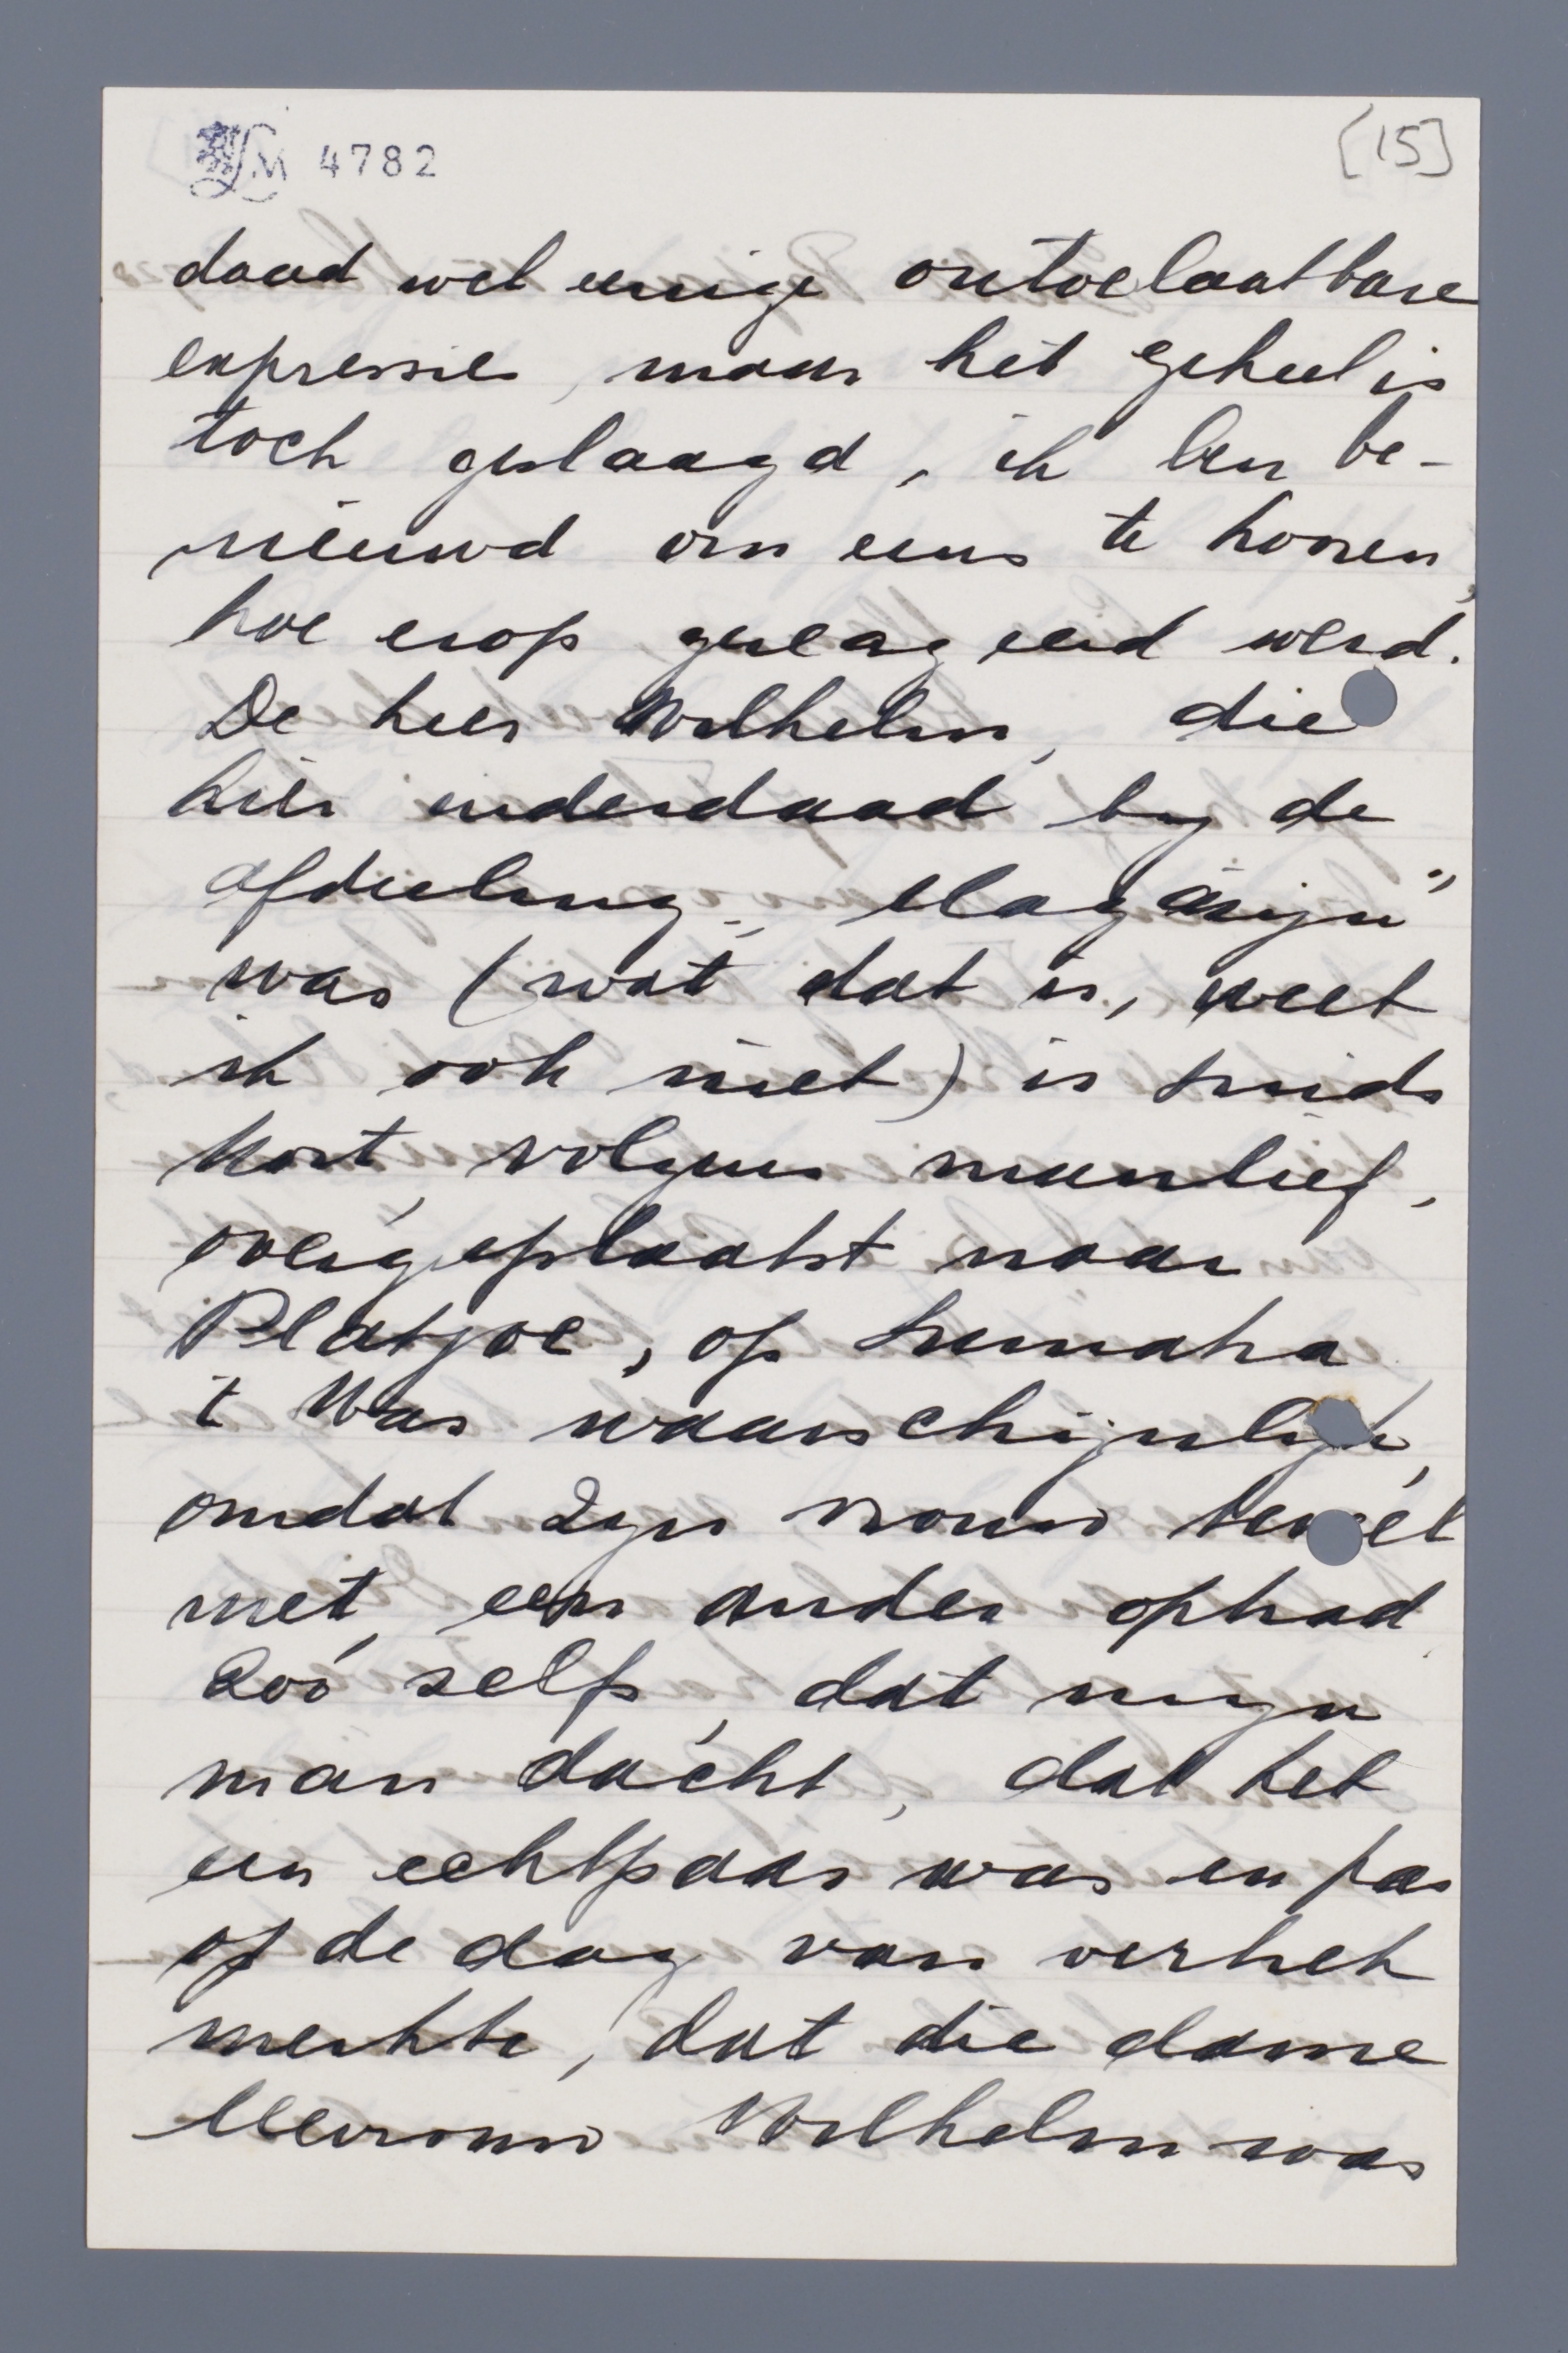 LM 4782
[15]
daad wel eenige ontoelaatbare
expressies, maar het geheel is
toch geslaagd, ik ben be-
nieuwd om eens te hooren,
hoe erop gereageerd werd.
De heer Wilhelm, die
hier inderdaad by de
afdeeling „Magazijn"
was (wat dat is, weet
ik ook niet) is sinds
kort, volgens manlief,
overgeplaatst naar
Pladjoe, op Sumatra
't Was waarschijnlijk,
omdat zyn vrouw teveel
met een ander ophad
zoó zelfs, dat myn
man dacht, dat het
een echtpaar was en pas
op de dag van vertrek
merkte, dat die dame
Mevrouw Wilhelm was